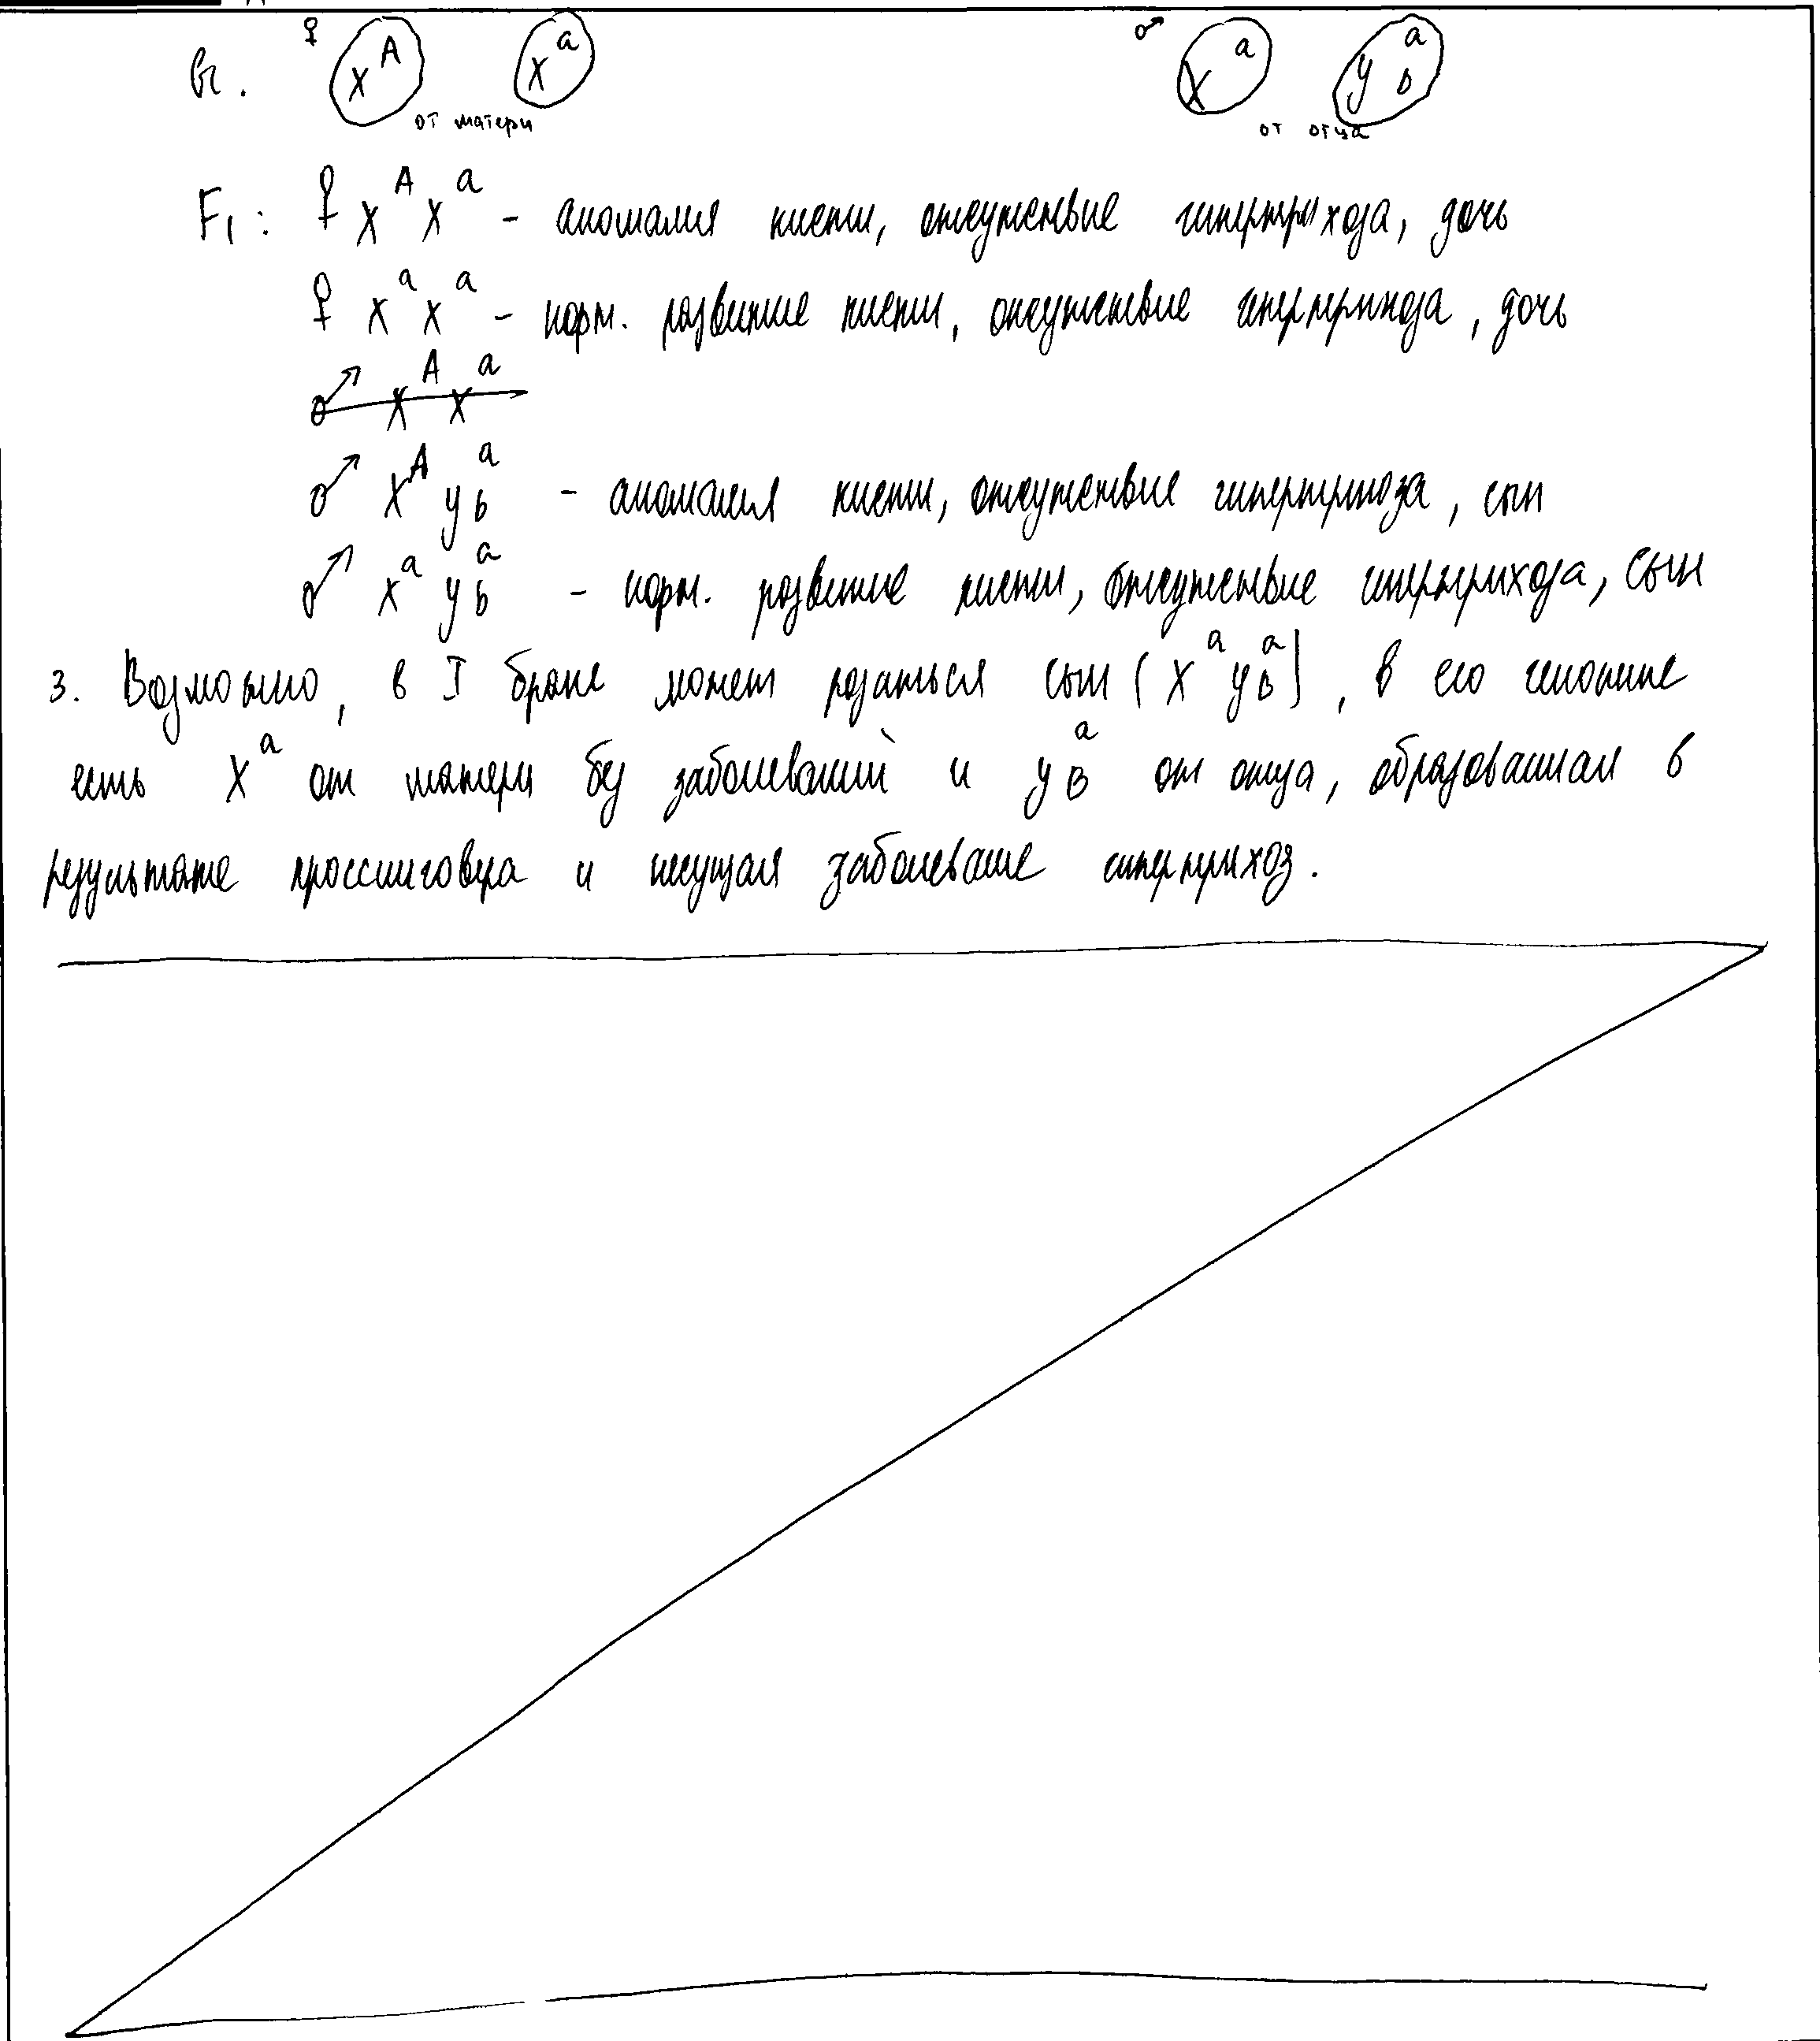 ♀ X^A X^a ♂ X^a Y^a_b
G.
от матери от отца
F₁: ♀ X^A X^a - аномалия кисти, отсутствие гипертрихоза, дочь
♀ X^a X^a - норм. развитие кисти, отсутствие гипертрихоза, дочь
♂ X^A X^a
♂ X^A Y^a_b - аномалия кисти, отсутствие гипертрихоза, сын
♂ X^a Y^a_b - норм. развитие кисти, отсутствие гипертрихоза, сын
3. Возможно, в I браке может родиться сын (X^a Y^a_B), в его генотипе
есть X^a от матери без заболеваний и Y^a_B от отца, образованная в
результате кроссинговера и несущая заболевание гипертрихоз.